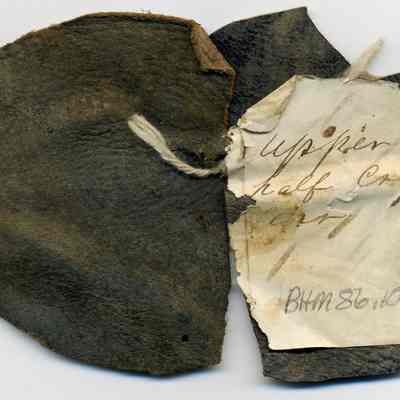 upper
half Cr
BHM 86.10